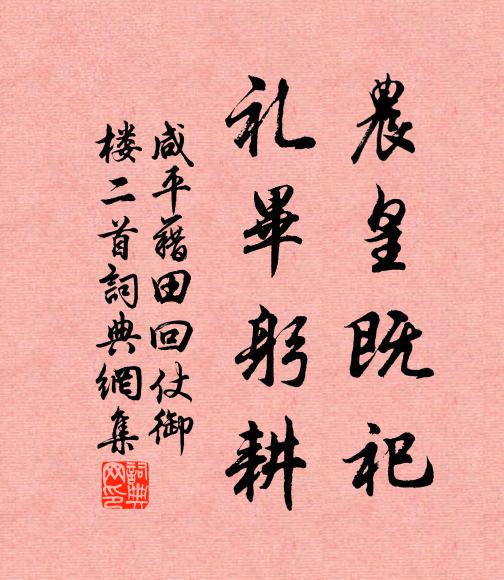 農皇既祀
礼畢躬耕
咸平藉田回仗御
楼二首詞典網集
詞典
网印